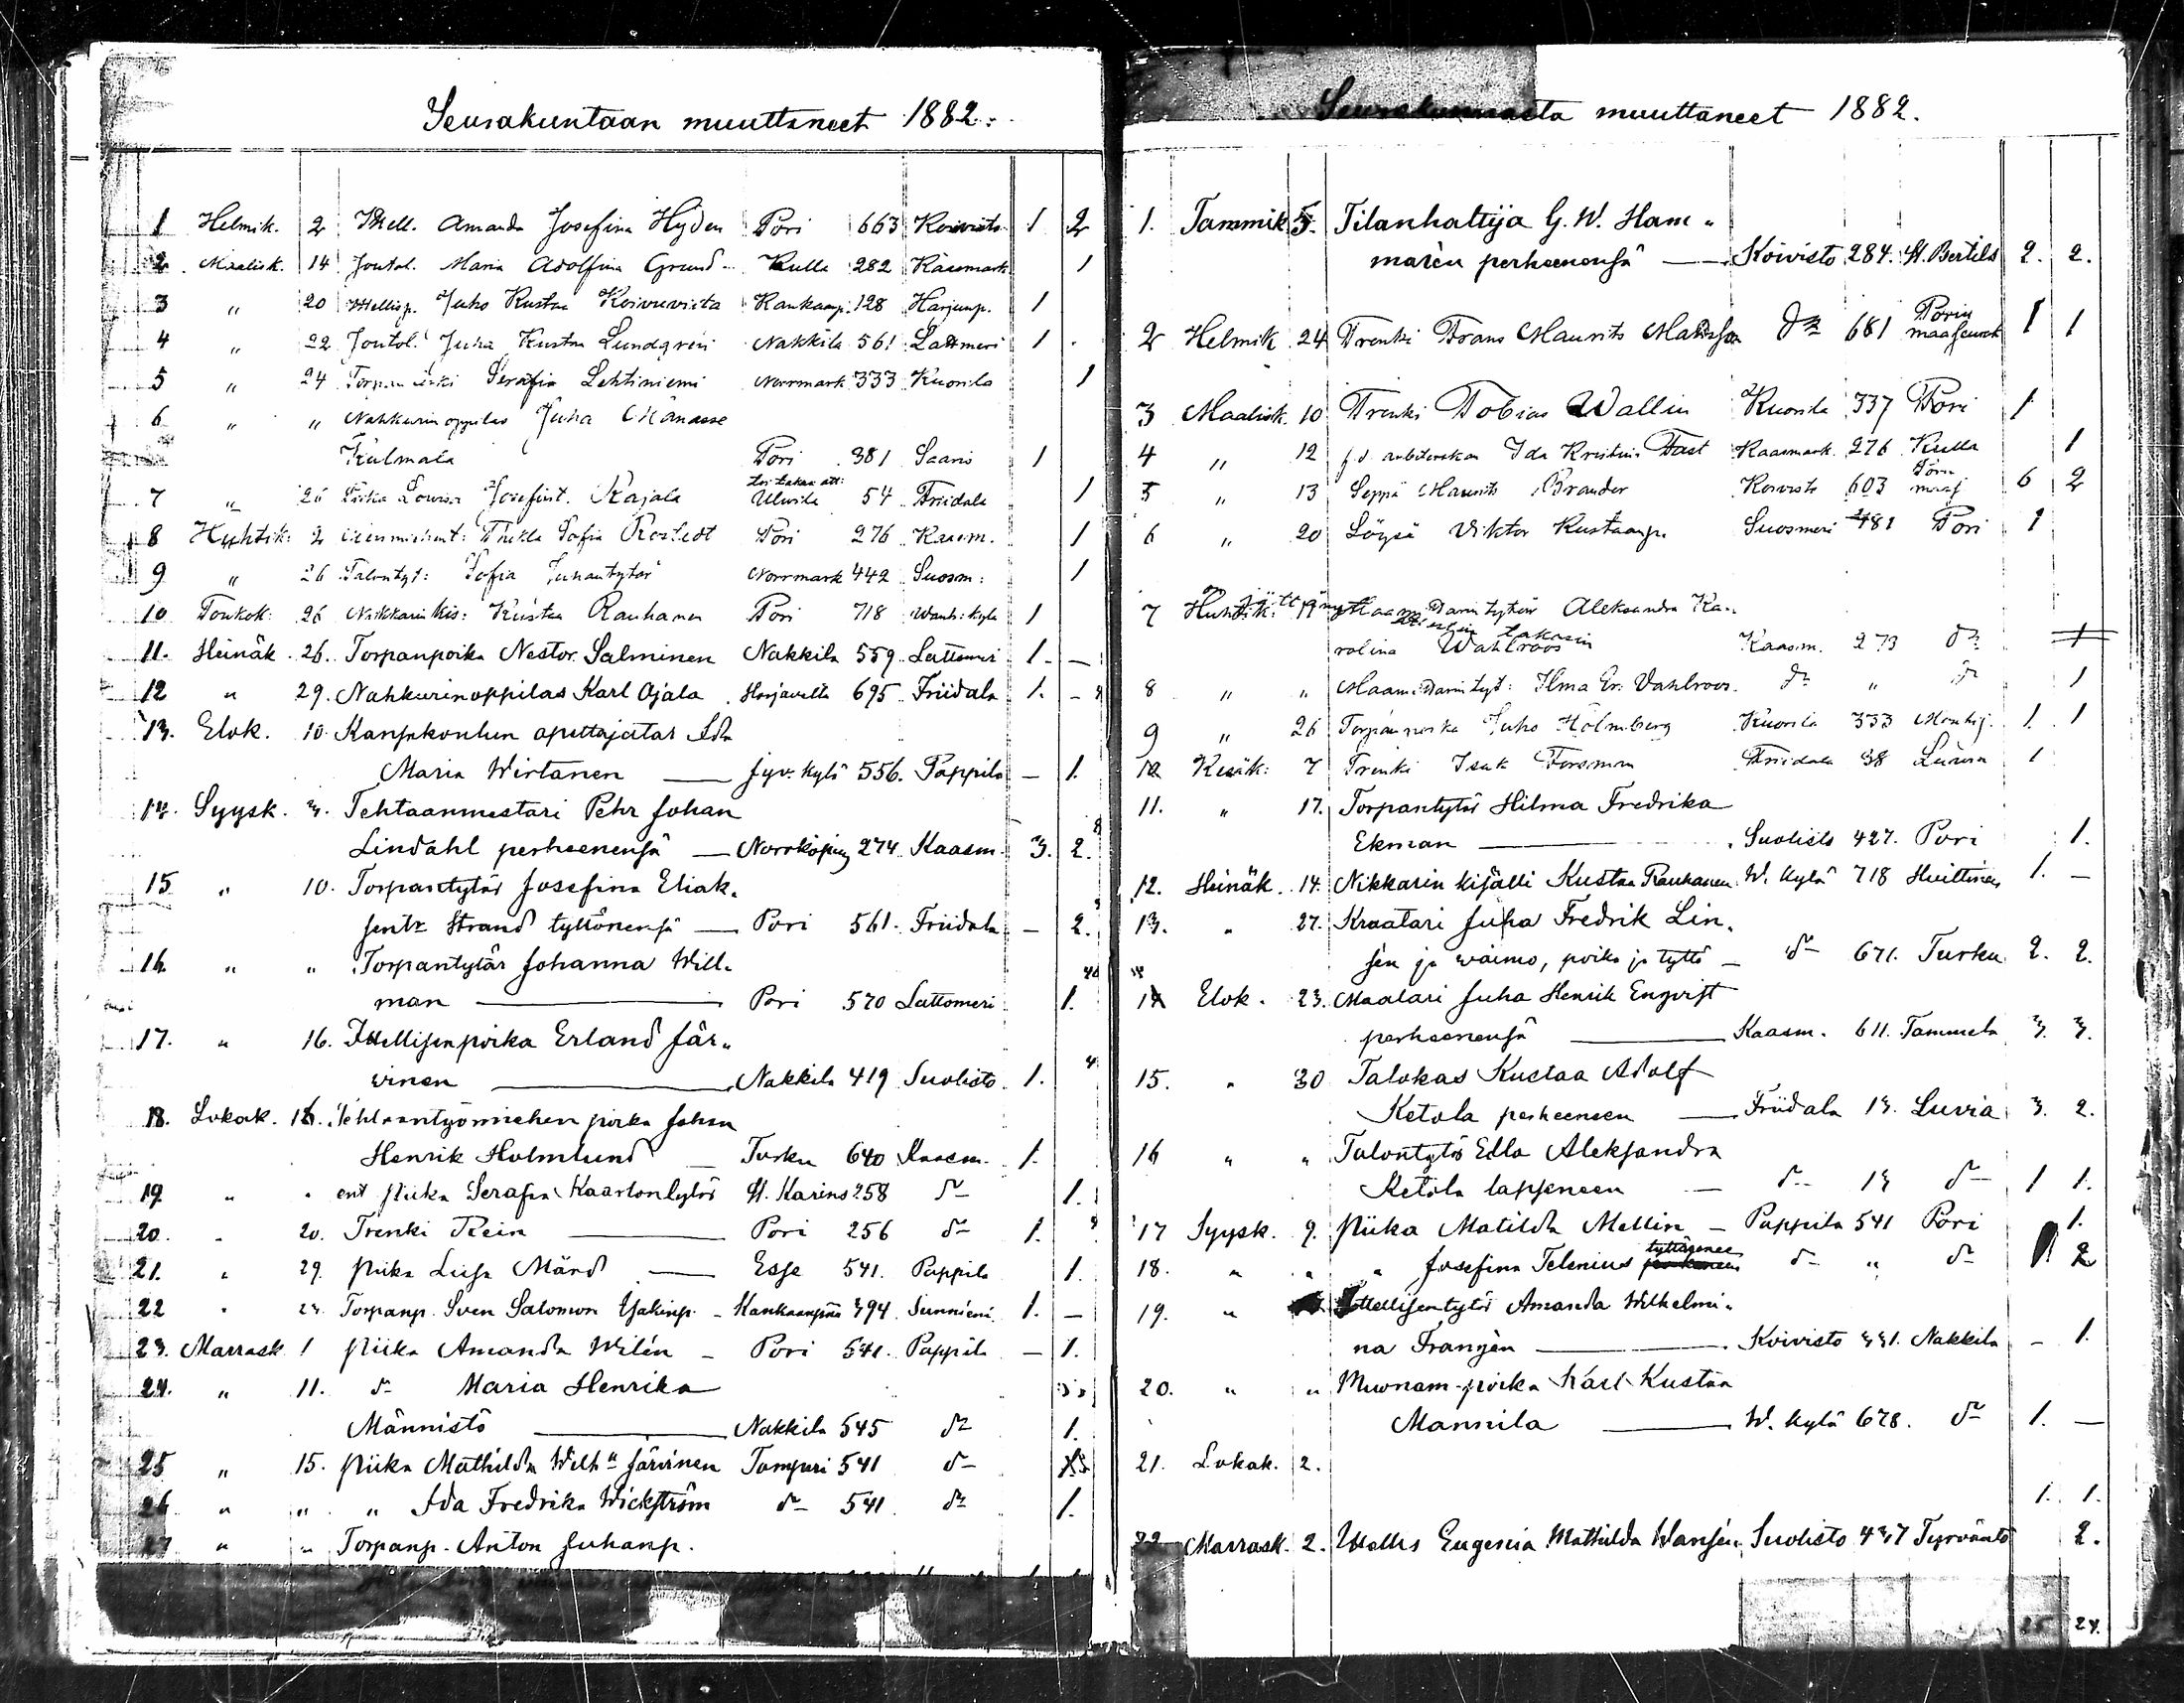 Seurakuntaan muuttaneet 1882.
1 Helmik. 2 Mell. Amanda Josefina Hyden Pori 663 Koivisto 1 2
2 Maalisk. 14 Joutol. Maria Adolfina Grund Kulla 282 Kaasmark 1
3 " 20 Juho Kustaa Koivuvista Kankaanp. 128 Harjunp. 1
4 " 22 Joutol. Juha Kustaa Lundqren Nakkila 561 Lattmeri 1
5 " 24 Serafia Lehtiniemi Norrmark 333 Kuorila 1
6 " " Nahkurin oppilas Juha Manasse
Kulmala Pori 381 Saaris 1
7 " 26 Piika Lovisa Josefint. Rajala Ulvila 54 Friidala 1
8 Huhtik: 2 Thekla Sofia Rostedt Pori 276 Kaasm. 1
9 " 26 Talontyt: Sofia Juhantytär Norrmark 442 Suosm: 1
10 Toukok: 26 Nikkarin kis: Kustaa Rauhanen Pori 718 Wanh: kylä 1
11. Heinäk. 26. Torpanpoika Nestor Salminen Nakkila 559 Lattomeri 1. —
12 " 29. Nahkurinoppilas Karl Ojala Harjavalta 695 Friidala 1. -
13. Elok. 10. Kansakoulun opettajatar Ida
Maria Wirtanen — Jyv. kylä 556. Pappila — 1.
14. Syysk. 3. Tehtaanmestari Pehr Johan
Lindahl perheenensä — Norrköping 274 Kaasm. 3. 2.
15 " 10. Torpantytär Josefina Eliak.
sentr Strand tyttönensä — Pori 561. Friidala — 2.
16. " " Torpantytär Johanna Will-
man — Pori 570 Lattomeri 1.
17. " 16. Itsellisenpoika Erland Jär-
vinen — Nakkila 419 Suolisto 1.
18. Lokak. 16. Tehtaantyömiehen poika Johan
Henrik Holmlund — Turku 640 Kaasm. 1.
19. " " ent piika Serafia Kaarlontytär St. Karins 258 d:o 1.
20. " 20. Trenki Rein — Pori 256 d:o 1.
21. " 29. Piika Liisa Mård — Esse 541. Pappila 1.
22 " 23. Torpanp. Sven Salomon Isakinp. - Kankaanpää 394 Sunniemi 1. —
23. Marrask. 1 Piika Amanda Wilén — Pori 541. Pappila — 1.
24. " 11. d:o Maria Henrika
Männistö — Nakkila 545 d:o 1.
25 " 15. Piika Mathilda Wilh:a Järvinen Tampuri 541 d:o
26 " " " Ida Fredrika Wickström d:o 541 d:o 1.
27 " " Torpanp. Anton Juhanp.
Seurakunnasta muuttaneet 1882.
1. Tammik. 5. Tilanhaltija G. W. Ham-
marén perheenensä — Koivisto 284. St. Bertils 2. 2.
2 Helmik 24 Trenki Frans Maurits d:o 681 Porin maaseurak 1 1
3 Maalisk. 10 Trenki Tobias Wallin Kuorila 337 Pori 1
4 " 12 f.d. arbeterskan Ida Kristina Fast Kaasmark. 276 Kulla 1
5 " 13 Seppä Maurits Brander Koivisto 603 Porin maas 6 2
6 " 20 Löysä Viktor Kustaanp. Suosmeri 481 Pori 1
7 Huhtik. 19 Aleksandra Ka-
rolina Wahlroos Kaasm. 273 d:o 1
takasin
8 " " Ilma Er. Vahlroos. d:o " d:o 1
9 " 26 Torpanpoika Juho Holmberg Kuorila 333 1. 1
10 Kesäk: 7 Trenki Isak Forsman Friidala 38 Luvia 1
11. " 17. Torpantytär Hilma Fredrika
Ekman — Suolisto 427. Pori 1.
12. Heinäk. 14. Nikkarin kisälli Kustaa Rauhanen W. kylä 718 Huittinen 1. —
13. " 27. Kraatari Juha Fredrik Lin-
sen ja waimo, poika ja tyttö — d:o 671. Turku 2. 2.
14 Elok. 23. Maalari Juha Henrik Engvist
perheenensä — Kaasm. 611. Tammela 3. 3.
15. " 30 Talokas Kustaa Adolf
Ketola perheensen — Friidala 13. Luvia 3. 2.
16 " " Talontytär Edla Aleksandra
Ketola lapseneen — d:o 13 d:o 1 1.
17 Syysk. 9. Piika Matilda Mellin — Pappila 541 Pori 1.
18. " " " Josefina Telenius tyttärenee d:o " d:o 2
19. " Itsellisentytär Amanda Wilhelmi-
na Fransén — Koivisto 331. Nakkila - 1.
20. " " Muonam-poika Karl Kustaa
Mannila — W. kylä 678. d:o 1. —
21. Lokak. 2.
1. 1.
22 Marrask. 2. Eugenia Mathilda Hansén Suolisto 437 Tyrväntö 2.
24.